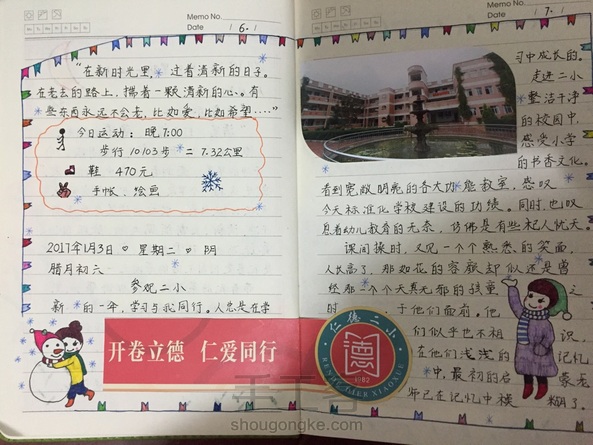 Memo No.
Date 16.1
"在新时光里,过着清新的日子。
在老去的路上,揣着一颗清新的心。有
些东西永远不会老,比如爱,比如希望……"
今日运动:晚7:00
步行10103步 = 7.32公里
鞋 470元
手帐、绘画
2017年1月3日 星期二 阴
腊月初六
参观二小
新的一年,学习与我同行。人总是在学
开卷立德 仁爱同行
Memo No.
Date 17.1
习中成长的。
走进二小
整洁干净
的校园中,
感受小学
的书香文化。
看到宽敞明亮的各大功能教室,感叹
今天标准化学校建设的功绩。同时,也叹
息着幼儿教育的无奈,仿佛是有些杞人忧天。
课间操时,又见一个个熟悉的笑面,
人长高了,那如花的容颜却似还是曾
经那一个个天真无邪的孩童
时 于他们面前。他 之
们似乎也不相 识,
在他们浅浅的 记忆
中,最初的启 蒙老
师已在记忆中模 糊了。
仁德二小
德
1982
RENDE ER XIAOXUE
手工客
shougongke.com